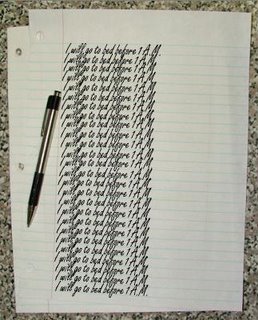 I will go to bed before 1 A.M.
I will go to bed before 1 A.M.
I will go to bed before 1 A.M.
I will go to bed before 1 A.M.
I will go to bed before 1 A.M.
I will go to bed before 1 A.M.
I will go to bed before 1 A.M.
I will go to bed before 1 A.M.
I will go to bed before 1 A.M.
I will go to bed before 1 A.M.
I will go to bed before 1 A.M.
I will go to bed before 1 A.M.
I will go to bed before 1 A.M.
I will go to bed before 1 A.M.
I will go to bed before 1 A.M.
I will go to bed before 1 A.M.
I will go to bed before 1 A.M.
I will go to bed before 1 A.M.
I will go to bed before 1 A.M.
I will go to bed before 1 A.M.
I will go to bed before 1 A.M.
I will go to bed before 1 A.M.
I will go to bed before 1 A.M.
I will go to bed before 1 A.M.
I will go to bed before 1 A.M.
I will go to bed before 1 A.M.